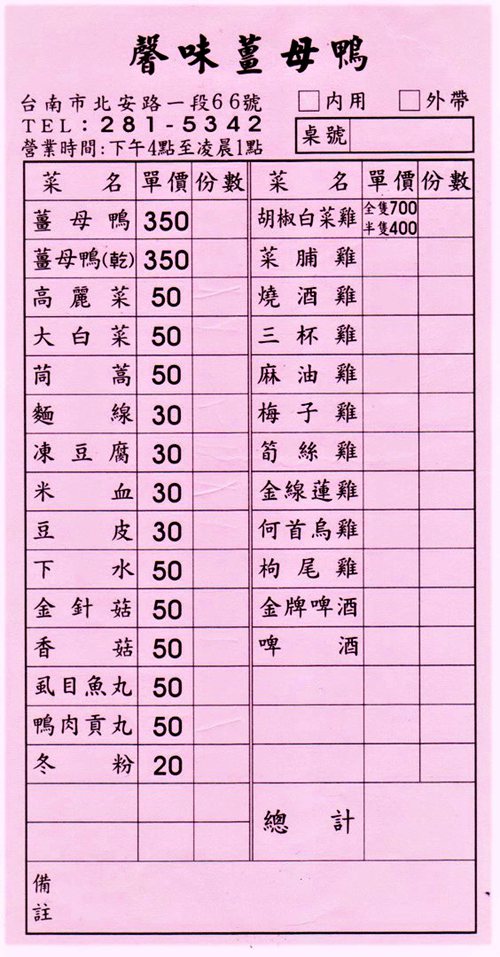 馨味薑母鴨
台南市北安路一段66號 □內用 □外帶
TEL：281-5342 桌號
營業時間:下午4點至凌晨1點
菜名 單價 份數 菜名 單價 份數
薑母鴨 350 胡椒白菜雞 全隻700 半隻400
薑母鴨(乾) 350 菜脯雞
高麗菜 50 燒酒雞
大白菜 50 三杯雞
茼蒿 50 麻油雞
麵線 30 梅子雞
凍豆腐 30 筍絲雞
米血 30 金線蓮雞
豆皮 30 何首烏雞
下水 50 枸尾雞
金針菇 50 金牌啤酒
香菇 50 啤酒
虱目魚丸 50
鴨肉貢丸 50
冬粉 20
總計
備註